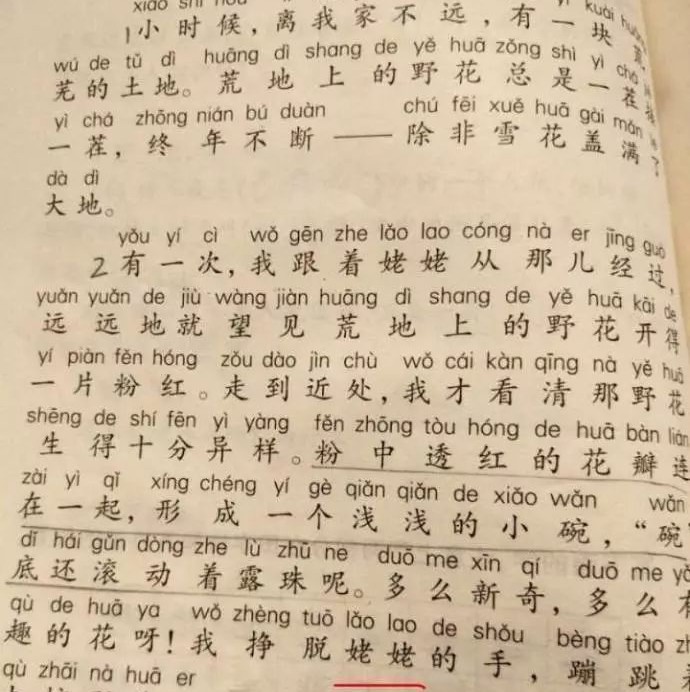 xiǎo shí hou
1小时候，离我家不远，有一块荒
wú de tǔ dì huāng dì shang de yě huā zǒng shì yì chá
芜的土地。荒地上的野花总是一茬接
yì chá zhōng nián bú duàn chú fēi xuě huā gài mǎn le
一茬，终年不断——除非雪花盖满了
dà dì
大地。
yǒu yí cì wǒ gēn zhe lǎo lao cóng nà er jīng guò
2有一次，我跟着姥姥从那儿经过，
yuǎn yuǎn de jiù wàng jiàn huāng dì shang de yě huā kāi de
远远地就望见荒地上的野花开得
yí piàn fěn hóng zǒu dào jìn chù wǒ cái kàn qīng nà yě huā
一片粉红。走到近处，我才看清那野花
shēng de shí fēn yì yàng fěn zhōng tòu hóng de huā bàn lián
生得十分异样。粉中透红的花瓣连
zài yì qǐ xíng chéng yí gè qiǎn qiǎn de xiǎo wǎn wǎn
在一起，形成一个浅浅的小碗，“碗”
dǐ hái gǔn dòng zhe lù zhū ne duō me xīn qí duō me
底还滚动着露珠呢。多么新奇，多么有
qù de huā ya wǒ zhèng tuō lǎo lao de shǒu bèng tiào
趣的花呀！我挣脱姥姥的手，蹦跳着
qù zhāi nà huā er